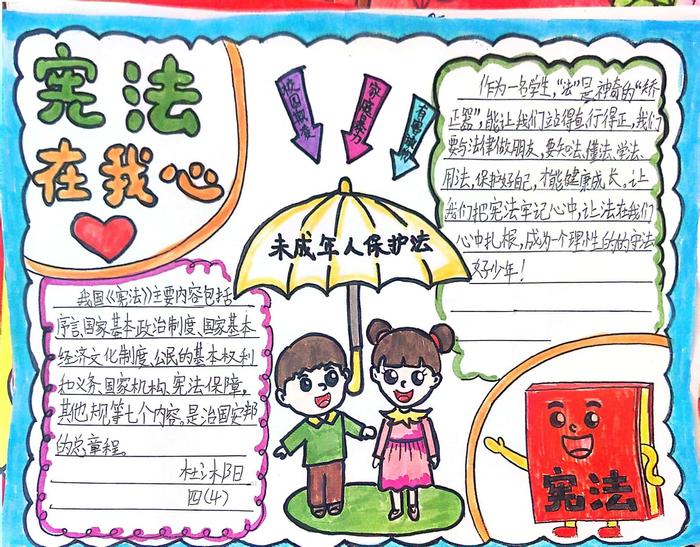 宪法
在我心
校园欺凌
家庭暴力
作为一名学生,“法”是神奇的“矫
正器”,能让我们站得直,行得正,我们
要与法律做朋友,要知法、懂法、学法、
用法,保护好自己,才能健康成长。让
我们把宪法牢记心中,让法在我们
心中扎根,成为一个理性的的守法
好少年!
未成年人保护法
我国《宪法》主要内容包括
序言、国家基本政治制度、国家基本
经济文化制度、公民的基本权利
和义务、国家机构、宪法保障,
其他规等七个内容。是治国安邦
的总章程。
四(4)
宪法